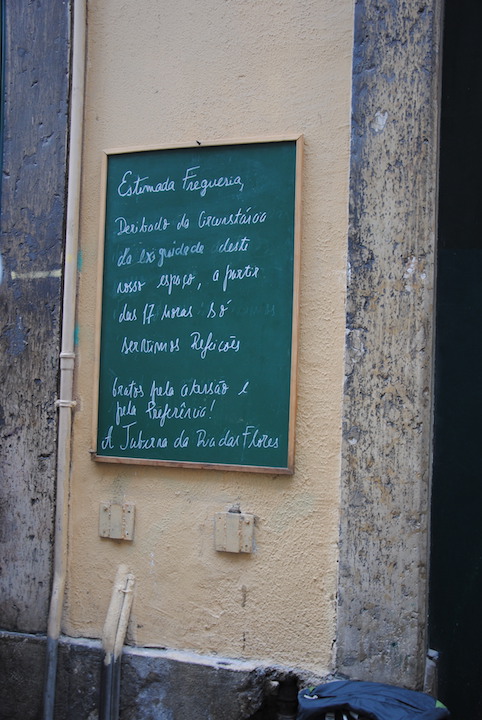 Estimada Freguesia,
Derivado da Circunstância
da Exiguidade deste
nosso espaço, a partir
das 17 horas só
servimos Refeições
Gratos pela atensão e
pela Preferência!
A Taberna da Rua das Flores